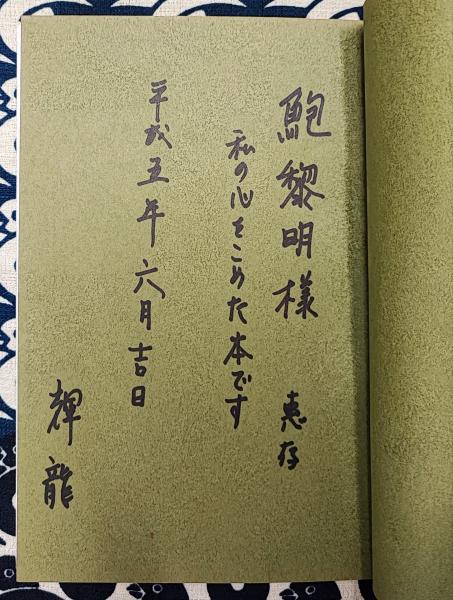 鮑黎明様 恵存
私の心をこめた本です
平成五年六月吉日
輝龍